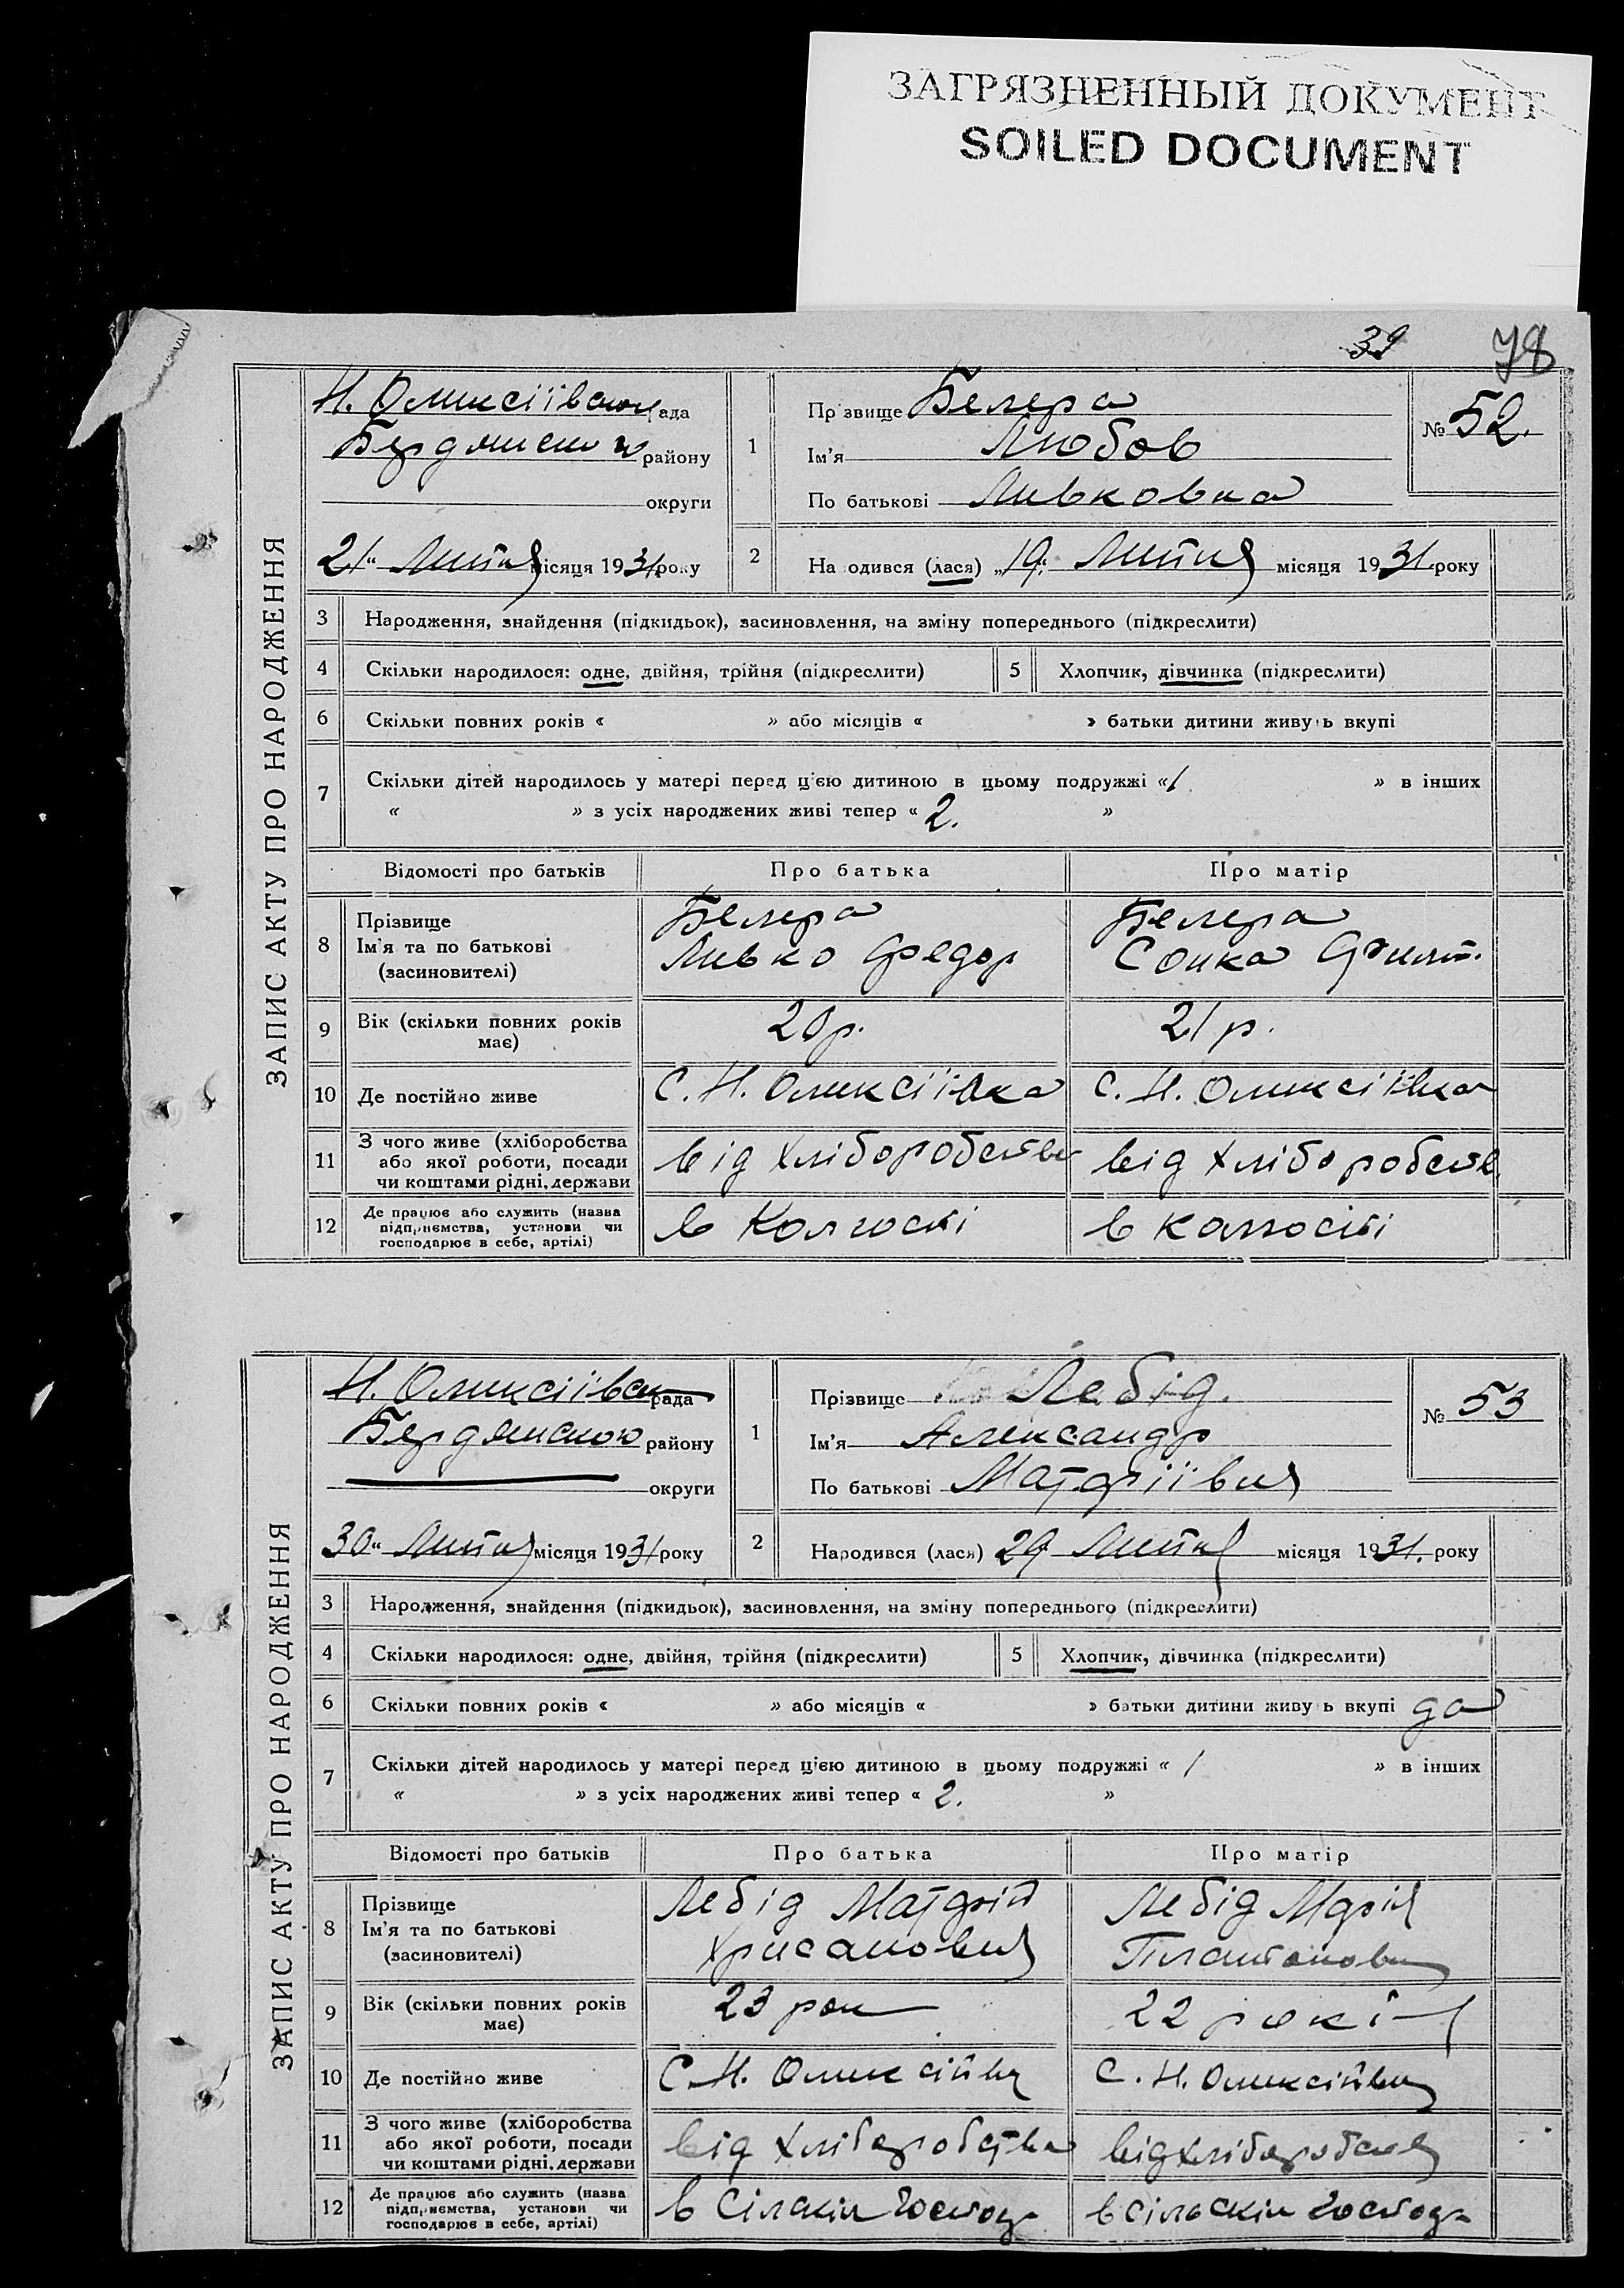 ЗАГРЯЗНЕННЫЙ ДОКУМЕНТ
SOILED DOCUMENT
39 78
ЗАПИС АКТУ ПРО НАРОДЖЕННЯ
Н. Оликсіївською рада
Бердянською району
округи
21 " Липня місяця 1931 року
1 Прізвище Белера
Ім'я Любов
По батькові Ливковна
№ 52.
2 На одився (лася) „19" Липня місяця 1931. року
3 Народження, знайдення (підкидьок), засиновлення, на зміну попереднього (підкреслити)
4 Скільки народилося: одне, двійня, трійня (підкреслити) 5 Хлопчик, дівчинка (підкреслити)
6 Скільки повних років « » або місяців « » батьки дитини живу ь вкупі
7 Скільки дітей народилось у матері перед цією дитиною в цьому подружжі «1 » в інших
« » з усіх народжених живі тепер « 2. »
Відомості про батьків Про батька Про матір
8 Прізвище
Ім'я та по батькові
(засиновителі)
Белера
Ливко Федор
Белера
Сонка
9 Вік (скільки повних років
має)
20 р. 21 р.
10 Де постійно живе С. Н. Оликсіївка С. Н. Оликсіївка
11 З чого живе (хліборобства
або якої роботи, посади
чи коштами рідні, держави
від хліборобства від хліборобств
12 Де працює або служить (назва
підприємства, установи чи
господарює в себе, артілі)
в Колгоспі в колгоспі
ЗАПИС АКТУ ПРО НАРОДЖЕННЯ
Н. Оликсіївськ рада
Бердянською району
округи
30 " Липня місяця 1931 року
1 Прізвище Лебід.
Ім'я Александр
По батькові Матфіївич
№ 53
2 Народився (лася) 29 Липня місяця 1931. року
3 Народження, знайдення (підкидьок), засиновлення, на зміну попереднього (підкреслити)
4 Скільки народилося: одне, двійня, трійня (підкреслити) 5 Хлопчик, дівчинка (підкреслити)
6 Скільки повних років « » або місяців « » батьки дитини живу ь вкупі да
7 Скільки дітей народилось у матері перед цією дитиною в цьому подружжі « 1 » в інших
« » з усіх народжених живі тепер « 2. »
Відомості про батьків Про батька Про матір
8 Прізвище
Ім'я та по батькові
(засиновителі)
Лебід Матфій
Хрисанович
Лебід Марія
Платонови
9 Вік (скільки повних років
має)
23 рок 22 рокі
10 Де постійно живе С. Н. Оликсіївці С. Н. Оликсіївці
11 З чого живе (хліборобства
або якої роботи, посади
чи коштами рідні, держави
від хліборобства від хліборобств
12 Де працює або служить (назва
підприємства, установи чи
господарює в себе, артілі)
в Сілскім Господ в сільскім господ